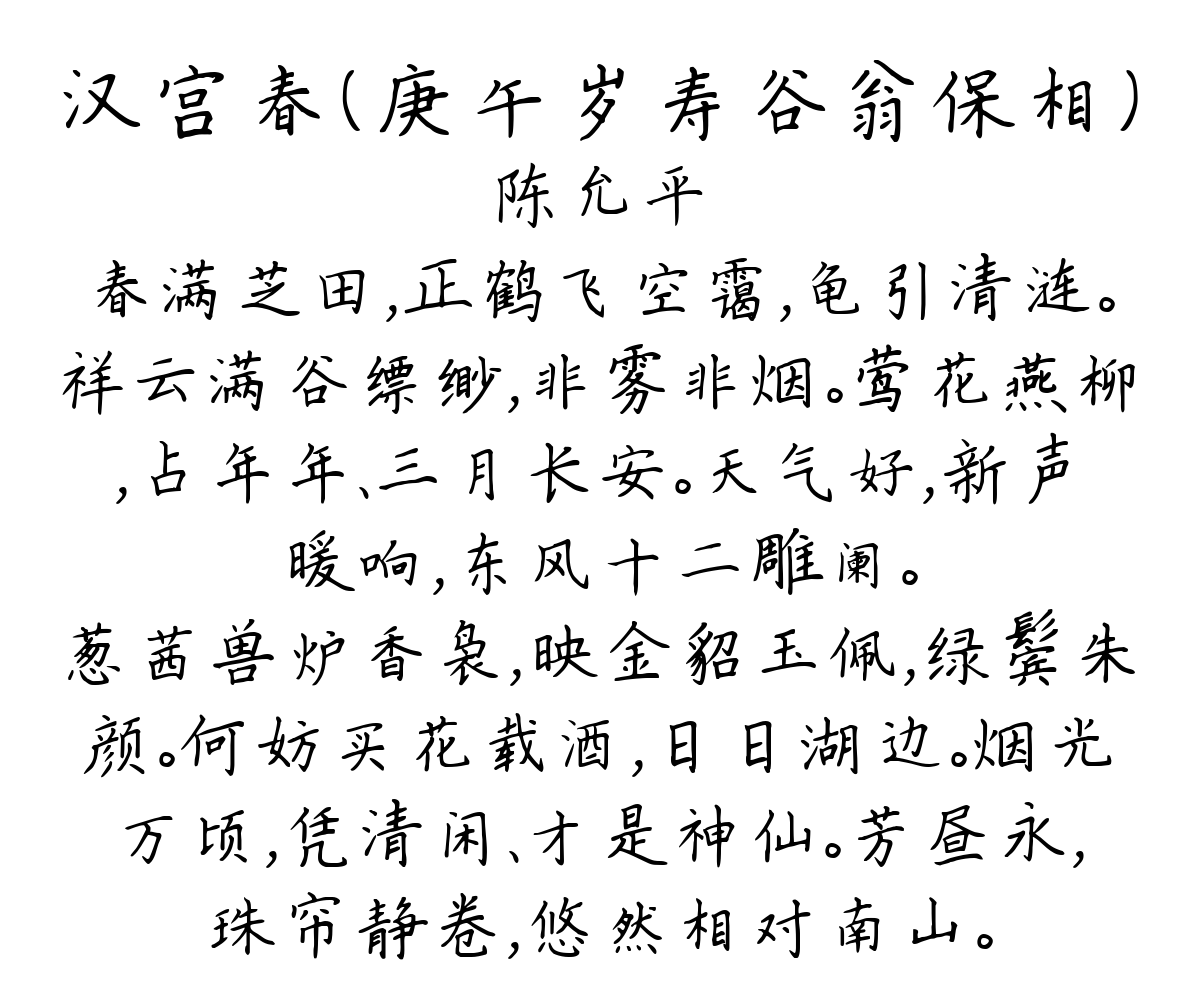 汉宫春(庚午岁寿谷翁保相)
陈允平
春满芝田,正鹤飞空霭,龟引清涟。
祥云满谷缥缈,非雾非烟。莺花燕柳
,占年年、三月长安。天气好,新声
暖响,东风十二雕阑。
葱茜兽炉香袅,映金貂玉佩,绿鬓朱
颜。何妨买花载酒,日日湖边。烟光
万顷,凭清闲、才是神仙。芳昼永,
珠帘静卷,悠然相对南山。